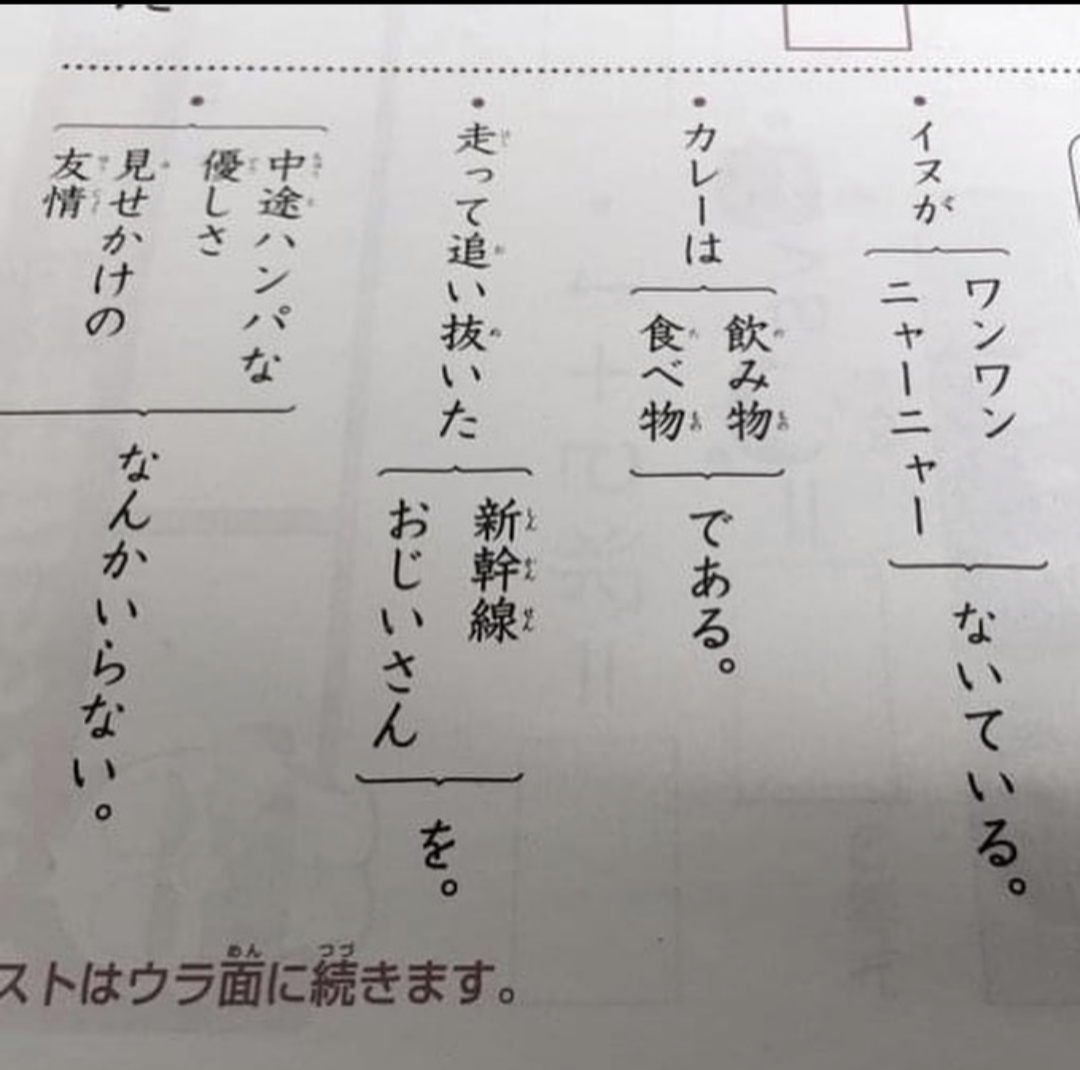 ・イヌが
ワンワン
ニャーニャー
ないている。
・カレーは
飲み物
食べ物
である。
・走って追い抜いた
新幹線
おじいさん
を。
・中途ハンパな
優しさ
見せかけの
友情
なんかいらない。
ストはウラ面に続きます。